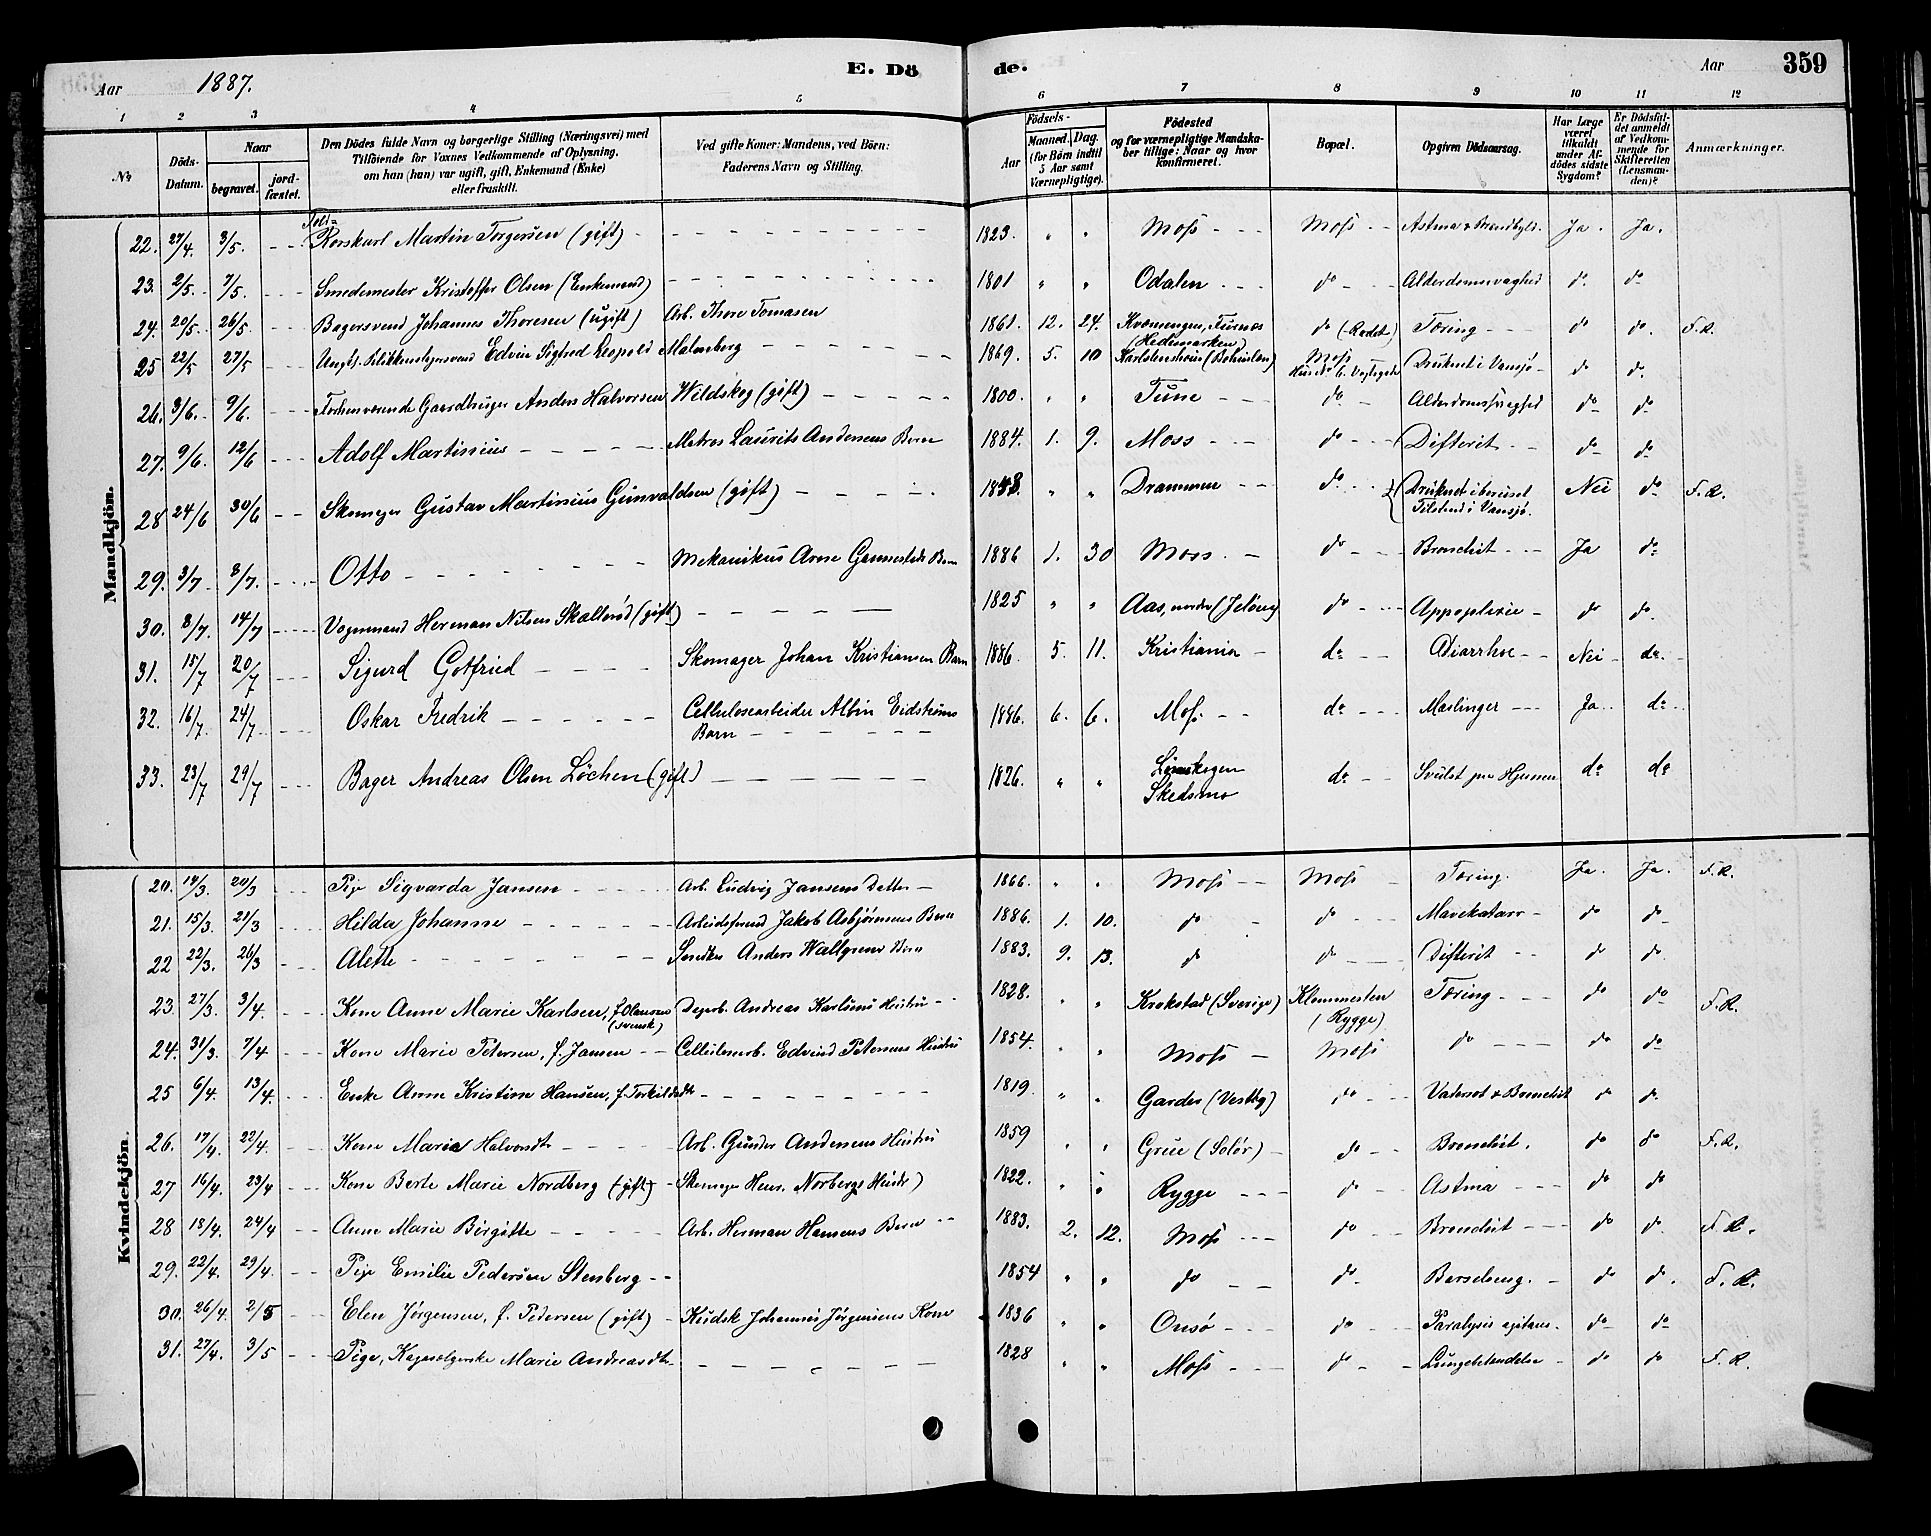 Aar 1887. E. Döde. Aar 359
1 2 3 4 5 6 7 8 9 10 11 12
№ Döds-Datum. Naar begravet. jordfæstet. Den Dödes fulde Navn og borgerlige Stilling (Næringsvei) med Tilföiende for Voxnes Vedkommende af Oplysning, om han (hun) var ugift, gift, Enkemand (Enke) eller fraskilt. Ved gifte Koner: Mandens, ved Börn: Faderens Navn og Stilling. Födsels- Aar Maaned. Dag. (for Börn indtil 5 Aar samt Værnepligtige). Födested og for værnepligtige Mandskaber tillige: Naar og hvor konfirmeret. Bopæl. Opgiven Dödsaarsag. Har Læge været tilkaldt under Afdödes sidste Sygdom? Er Dödsfaldet anmeldt af Vedkommende for Skifteretten (Lensmanden)? Anmærkninger.
Mandkjön.
22. 27/4. 3/5. Told-Rorskarl Martin Torgersen (gift) 1823. " " Moss Moss Astma Ja. Ja.
23. 2/5. 7/5. Smedemester Kristoffer Olsen (Enkemand) 1801 " " Odalen do Alderdomssvaghed do do
24. 20/5. 26/5. Bagersvend Johannes Thoresen (ugift) Arb. Thore Tomasen 1861. 12. 24. Furnes (Hedemarken) do Tæring do do. F.R.
25 22/5 27/5 Ungk. Blikkenslagersvend Edvin Sigfred Leopold Malmberg 1869. 5. 10 (Bohuslen) Moss Druknet i Vansjø do do.
26. 3/6. 9/6. Forhenværende Gaardbruger Anders Halvorsen Wildskog (gift) 1800. " " Tune do Alderdomssvaghed do do
27. 9/6. 12/6 Adolf Martinius Matros Laurits Andersens Barn 1884. 1. 9. Moss do Difterit do do
28 24/6 30/6 Skomager Gustav Martinius Gunvaldsen (gift) 1848. " " Drammen do Druknet i beruset Tilstand i Vansjø. Nei do F.R.
29. 3/7 8/7. Otto Mekanikus Arne Gannestads Barn 1886 1. 30 Moss. do Bronchit Ja do
30. 8/7. 14/7 Vognmand Herman Nilsen Skallerød (gift) 1825 " " Aas, nordre (Jeløen) do Appoplexie do do.
31. 15/7 20/7 Sigurd Gotfried Skomager Johan Kristiansen Barn 1886. 5. 11. Kristiania do Diarrhoe Nei do.
32. 16/7. 24/7. Oskar Fredrik Cellulosearbeider Albin Eidstrøms Barn 1886. 6. 6. Moss do Meslinger Ja do
33. 23/7 29/7 Bager Andreas Olsen Løchen (gift) 1826. " " Skedsmo do Svulst paa Hjernen do do
Kvindekjön.
20. 14/3. 20/3 Pige Sigvarda Jansen Arb. Ludvig Jansens Datter 1866. " " Moss Moss Tæring. Ja. Ja. F.R.
21. 15/3. 21/3 Hilda Johanne Arbeidsmand Jakob Asbjørnsens Barn 1886. 1. 10. do do Mavekatarr do do
22 22/3. 26/3 Alette Anders Wallgrens Barn 1883. 9. 13. do do Difterit do do.
23. 27/3. 3/4. Kone Anne Marie Karlsen, f. Olausen (svensk) Andreas Karlsens Hustru 1828. " " Krokstad (Sverige) Klommesten (Rygge) Tæring do do F.R.
24. 31/3. 7/4 Kone Marie Petersen, f. Jansen Cellulosearb. Edvind Petersens Hustru 1854. " " Moss Moss do do do
25 6/4. 13/4. Enke Anne Kristine Hansen, f. Torkildsdtr 1819. " " Garder (Vestby) do Vatersot & Bronchit do do.
26. 17/4. 22/4. Kone Maria Halvorsdtr Arb. Gunder Andersens Hustru 1859 " " Grue (Solør) do Bronchit. do do F.R.
27 16/4. 23/4 Kone Berte Marie Nordberg (gift) Skomager Henr. Norbergs Hustr) 1822. " " Rygge do Astma do do
28 18/4. 24/4 Anne Marie Birgitte Arb. Herman Hansens Barn 1883. 2. 12. Moss do Bronchit do do. F.R.
29. 22/4. 29/4. Pige Emilie Pedersen Stenberg 1854 " " do do Barselseng. do do. F.R.
30. 26/4. 2/5 Elen Jørgensen, f. Pedersen (gift) Kudsk Johannes Jørgensens Kone 1836 " " Onsø do Paralysis agitans do do
31. 27/4. 3/5 Pige, Kagesælgerske Marie Andreasdtr 1828 " " Moss do Lungebetændelse do do F.R.